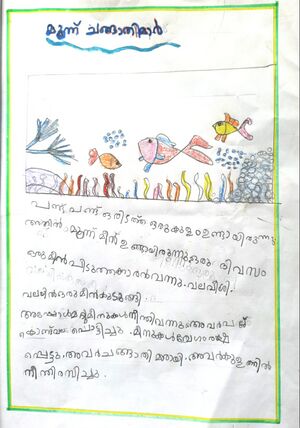 മൂന്ന് ചങ്ങാതിമാർ
പണ്ട് പണ്ട് ഒരിടത്ത് ഒരു കുളം ഉണ്ടായിരുന്നു
അതിൽ മൂന്ന് മീൻ ഉണ്ടായിരുന്നു ഒരു ദിവസം
ഒരു മീൻ പിടുത്തക്കാരൻ വന്നു. വല വീശി.
വലയിൽ ഒരു മീൻ കുടുങ്ങി.
അപ്പോൾ മറ്റു മീനുകൾ നീന്തി വന്നു അവർ പല്ല്
കൊണ്ട് വല പൊട്ടിച്ചു. മീനുകൾ വേഗം രക്ഷ
പ്പെട്ടു. അവർ ചങ്ങാതിമാരായി. അവർ കുളത്തിൽ
നീന്തി രസിച്ചു.